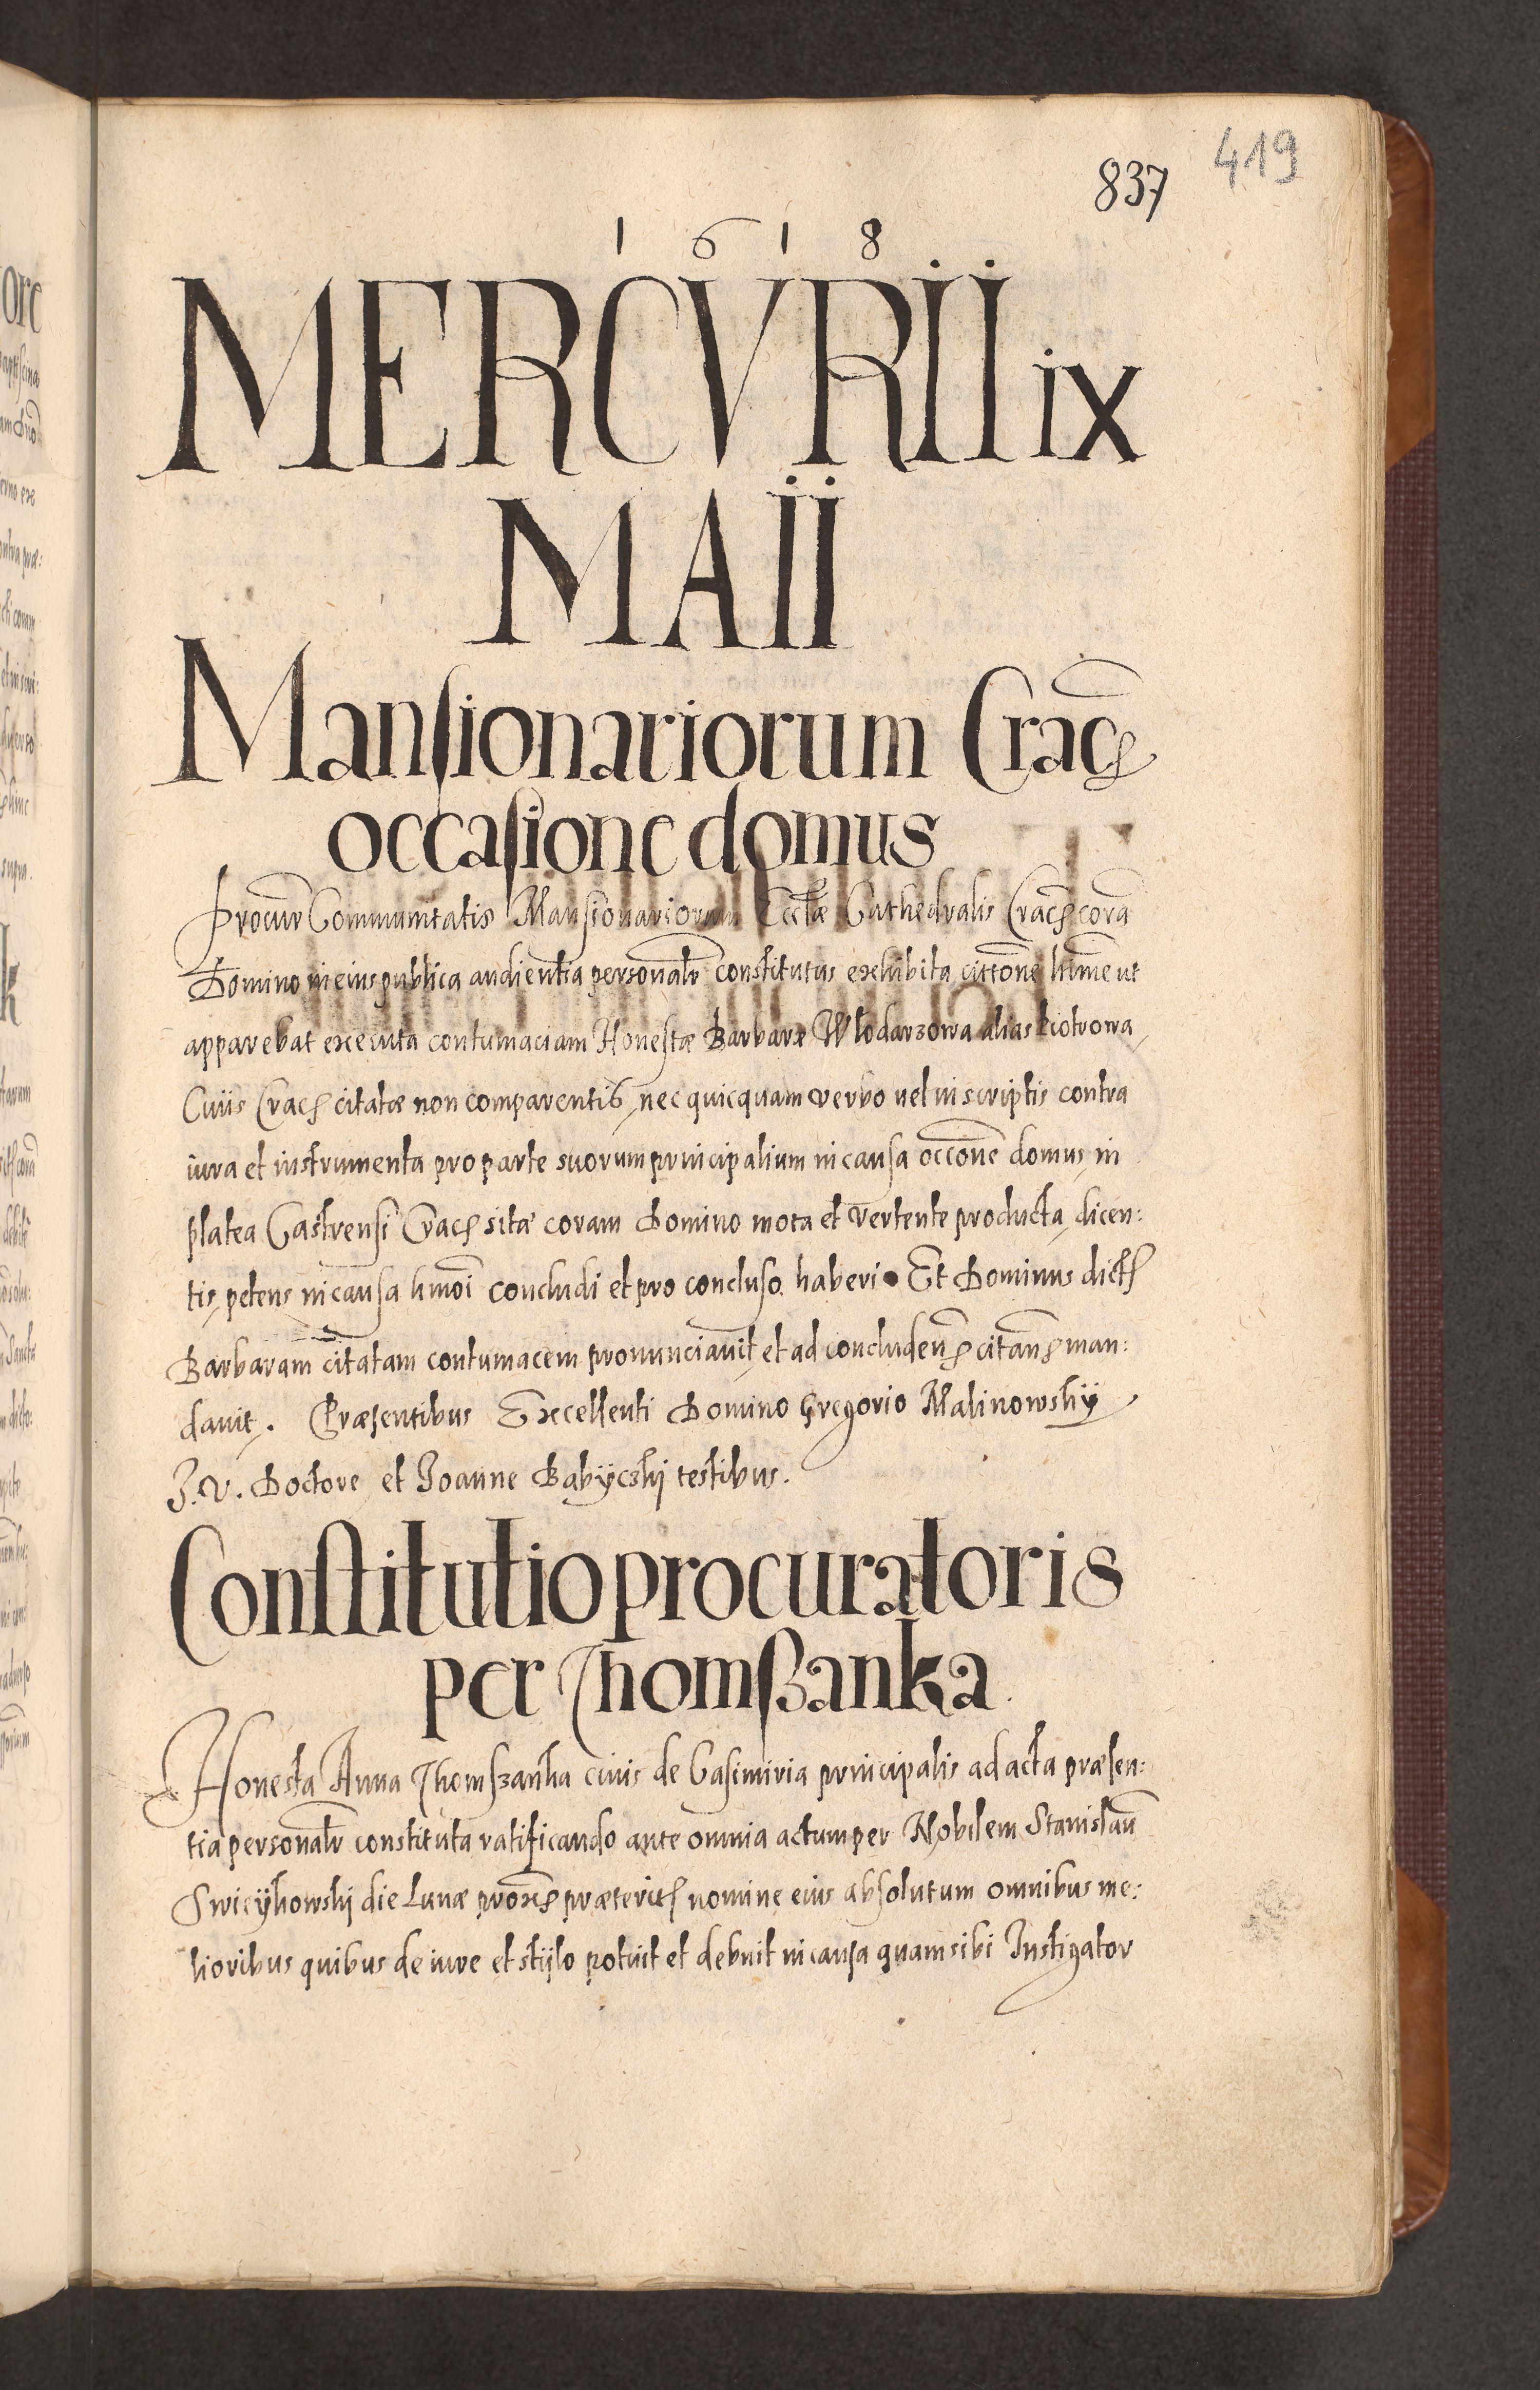 419
837
1 6 1 8
MERCVRII ix
MAII
Mansionariorum Crac
occasione domus
Procur Communitatis Mansionariorum Eccłæ Cathedralis Crac corā
Domino in eius publica audientia personalr constitutus exhibita cittōne hmē ut
apparebat executa contumaciam Honestæ Barbaræ Włodarzowa alias Piotrowa
Cuiis Crac citatæ non comparentis, nec quicquam verbo vel in scriptis contra
iura et instrumenta pro parte suorum principalium in causa occōne domus, in
platea Castrensi Crac sitæ coram Domino mota et vertente producta, dicen:
tis, petens in causa hmoi concludi et pro concluso haberi. Et Dominus dict
Barbaram citatam contumacem pronunciavit, et ad concludend citand man:
davit. Præsentibus Excellenti Domino Gregorio Malinowskÿ
J. V. Doctore et Joanne Babÿcski testibus.
Constitutio procuratoris
per Thomßanka
Honesta Anna Thomszanka civis de Casimiria principalis ad acta præsen:
tia personalr constituta ratificando ante omnia actum per Nobilem Stanislaū
Swicÿkowskij die Lunæ prox præterit nomine eius absolutum omnibus me:
lioribus quibus de iure et stÿlo potuit et debuit in causa quam sibi Instigator